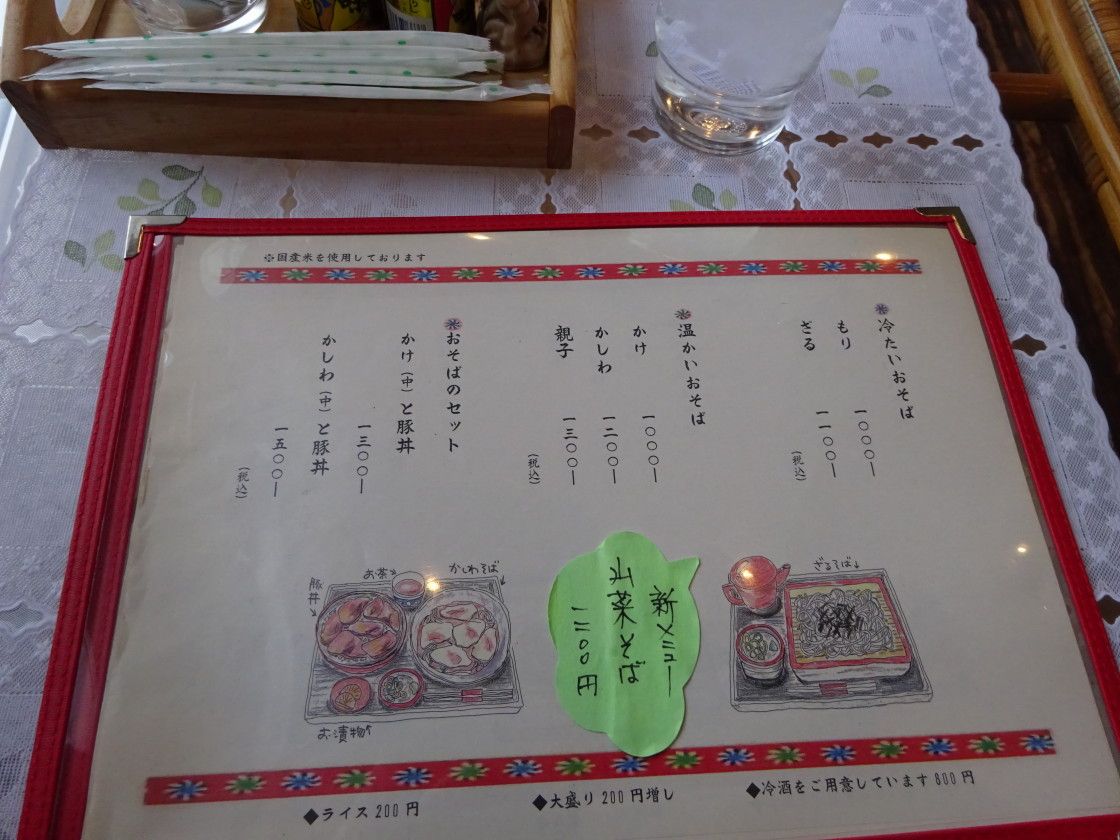 ※国産米を使用しております
冷たいおそば
もり 一〇〇〇ー
ざる 一一〇〇ー
(税込)
温かいおそば
かけ 一〇〇〇ー
かしわ 一二〇〇ー
親子 一三〇〇ー
(税込)
おそばのセット
かけ(中)と豚丼
一三〇〇ー
かしわ(中)と豚丼
一五〇〇ー
(税込)
ざるそば↓
新メニュー
山菜そば
一二〇〇円
かしわそば
お茶→
豚丼
お漬物
◆ライス 200円
◆大盛り 200円増し
◆冷酒をご用意しています 800円